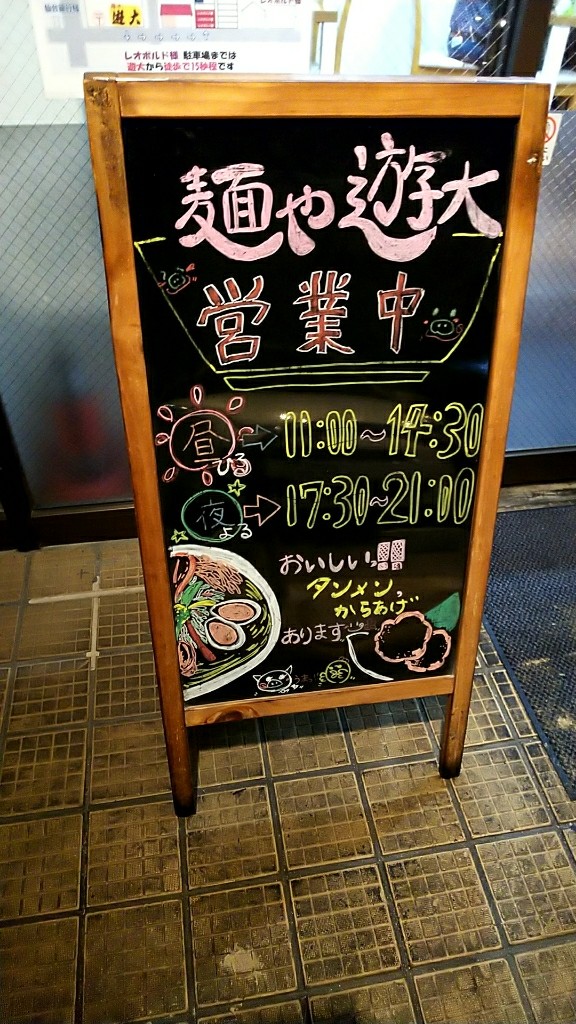 仙台銀行様
遊大
レオポルド様
レオポルド様 駐車場までは
遊大から徒歩で15秒程です
麺や遊大
営業中
昼 ひる → 11:00~14:30
夜 よる → 17:30~21:00
おいしいっ!!
タンメン、
からあげ
あります